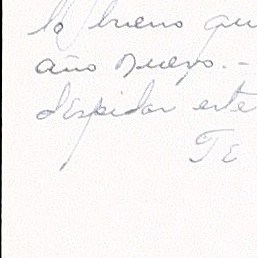 lo bueno qu
año nuevo.-
despidan este
TE